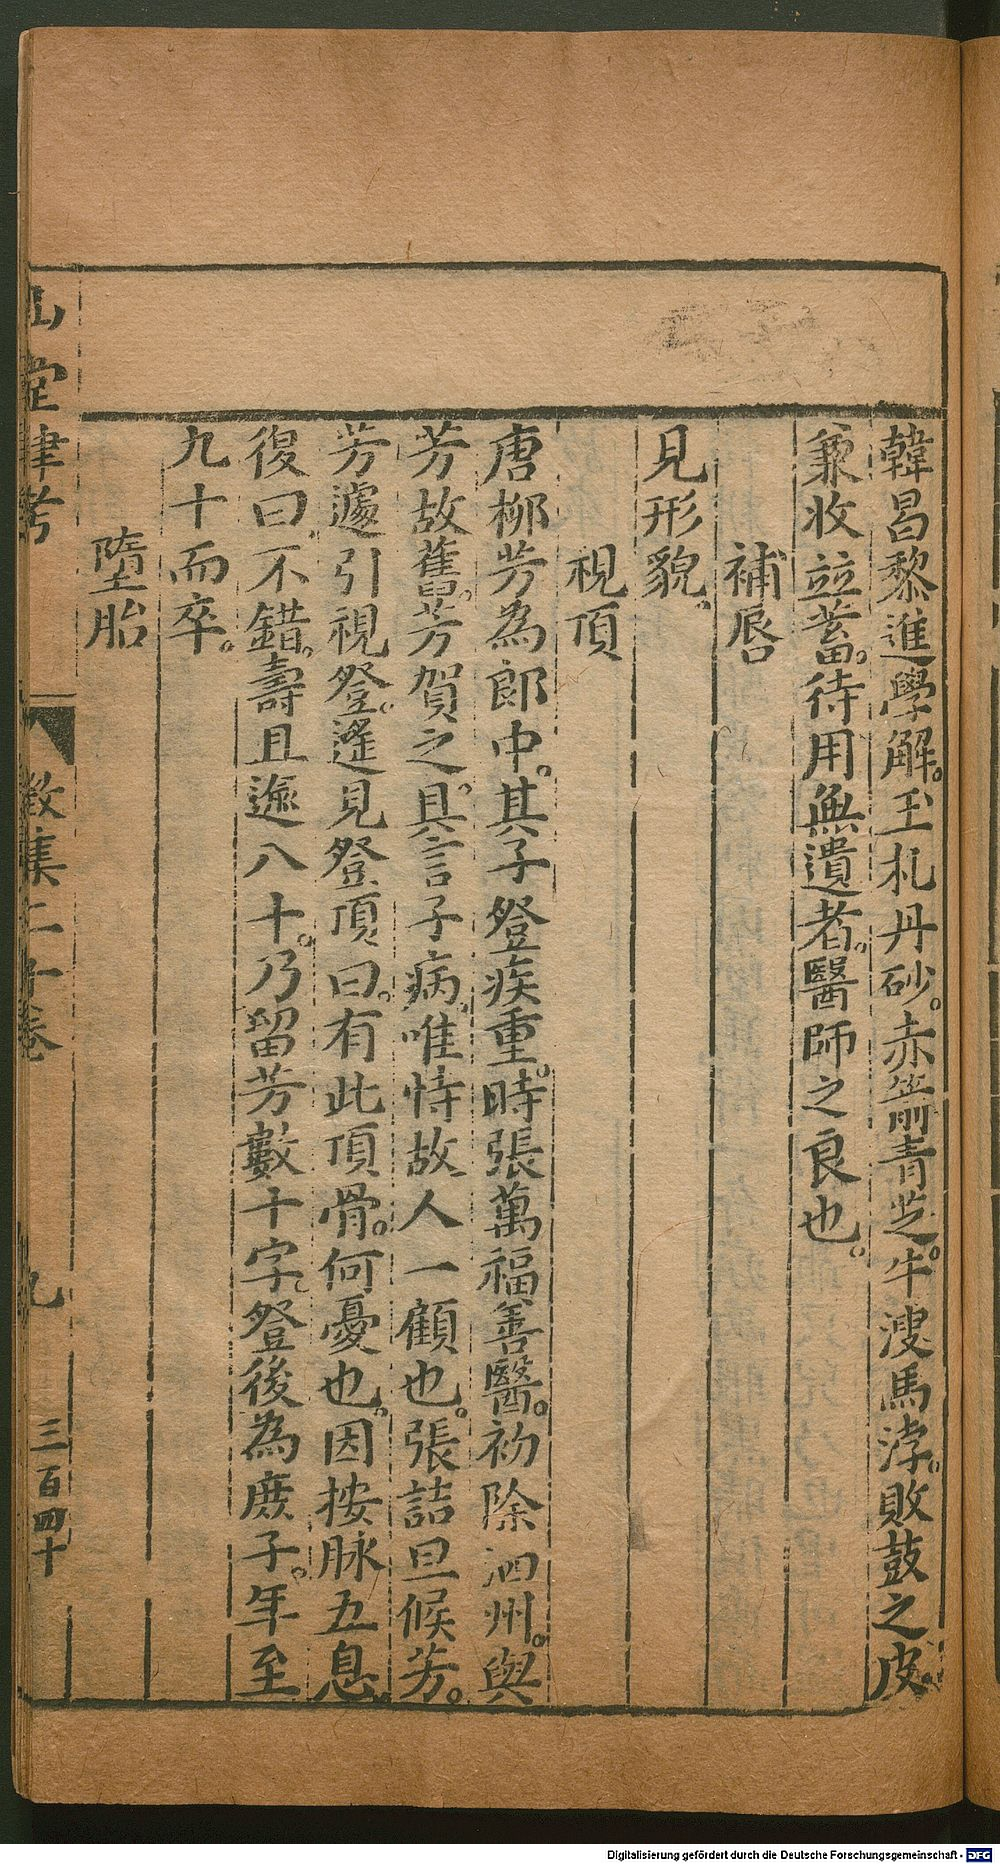 韓昌黎進學解。玉札丹砂。赤箭青芝。牛溲馬浡。敗鼓之皮。
兼收竝蓄。待用無遺者。醫師之良也。
補唇
見形貌。
視頂
唐柳芳為郎中。其子登疾重。時張萬福善醫。初除泗州。與
芳故舊。芳賀之。具言子病。唯恃故人一顧也。張詰旦候芳。
芳遽引視登。遙見登頂曰。有此頂骨。何憂也。因按脉五息。
復曰。不錯。壽且逾八十。乃留芳數十字。登後為庶子。年至
九十而卒。
墮胎
山堂肆考
徵集二十卷
九
三百四十
Digitalisierung gefördert durch die Deutsche Forschungsgemeinschaft - DFG